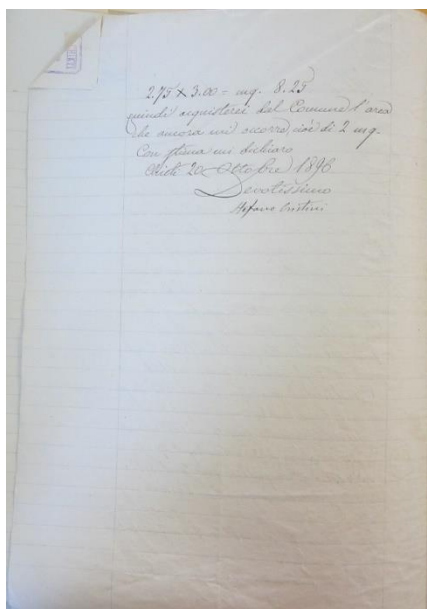 2.75 X 3.00 = mq. 8.25
quindi acquisterei dal Comune l'area
che ancora mi occorre, cioè di 2 mq.
Con stima mi dichiaro
Chieti 20 Ottobre 1896
Devotissimo